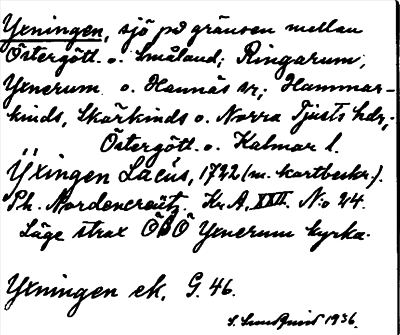 Yxningen, sjö på gränsen mellan
Östergötl. o. Småland; Ringarum,
Yxnerum o. Hannäs sr; Hammar-
kinds, Skärkinds o. Norra Tjusts hdr;
Östergötl. o. Kalmar l.
Ÿxingen Lacus, 1722 (m. kartbeskr.).
Ph. Nordencreütz, Kr. A. XXII. No 24.
Läge strax ÖSÖ Yxnerum kyrka.
Yxningen ek. G. 46.
S. Sundqvist 1936.